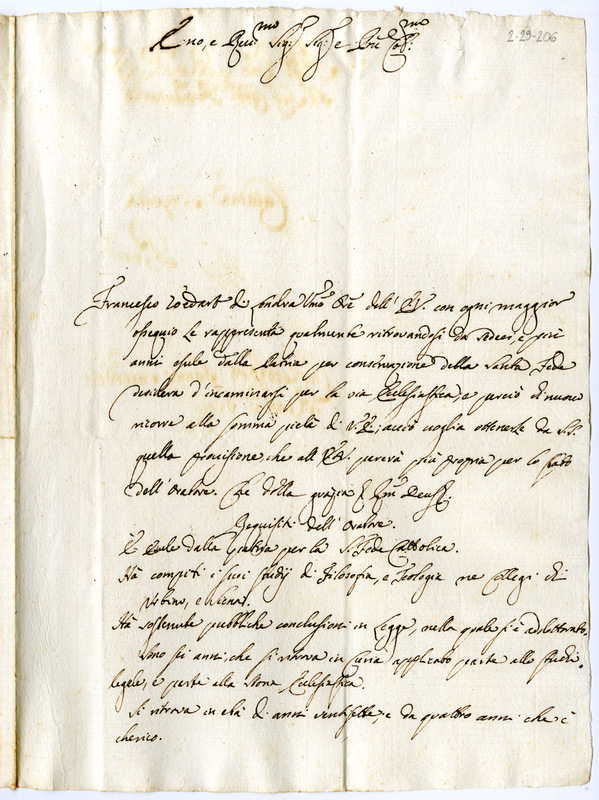 2-29-206
Emo, e Revmo Sigr Sigr e Pne Colmo
Francesco di Londra Umo Ore dell' E.V. con ogni maggior
ossequio le rappresenta qualmente ritrovandosi da sedeci, e più
anni esule dalla Patria per conservazione della Santa Fede
desidera d'incaminarsi per la via Ecclesiastica, e perciò di nuovo
ricorre alla somma pietà di V.E., acciò voglia ottenerle da S.S.
quella provisione, che all' E.V. parerà più propria per lo stato
dell' Oratore. Che della grazia
Requisiti dell' Oratore.
È esule dalla patria per la S. Fede Cattolica.
Hà compiti i suoi studij di Filosofia, e Teologia ne Collegi di
Urbino, e Siena.
Hà sostenute pubbliche conclusioni in Legge, nella quale si è addottorato.
Sono sei anni, che si ritrova in Curia applicato parte allo studio
legale, e parte alla Ecclesiastica.
Si ritrova in età di anni ventisette, e da quattro anni che è
cherico.